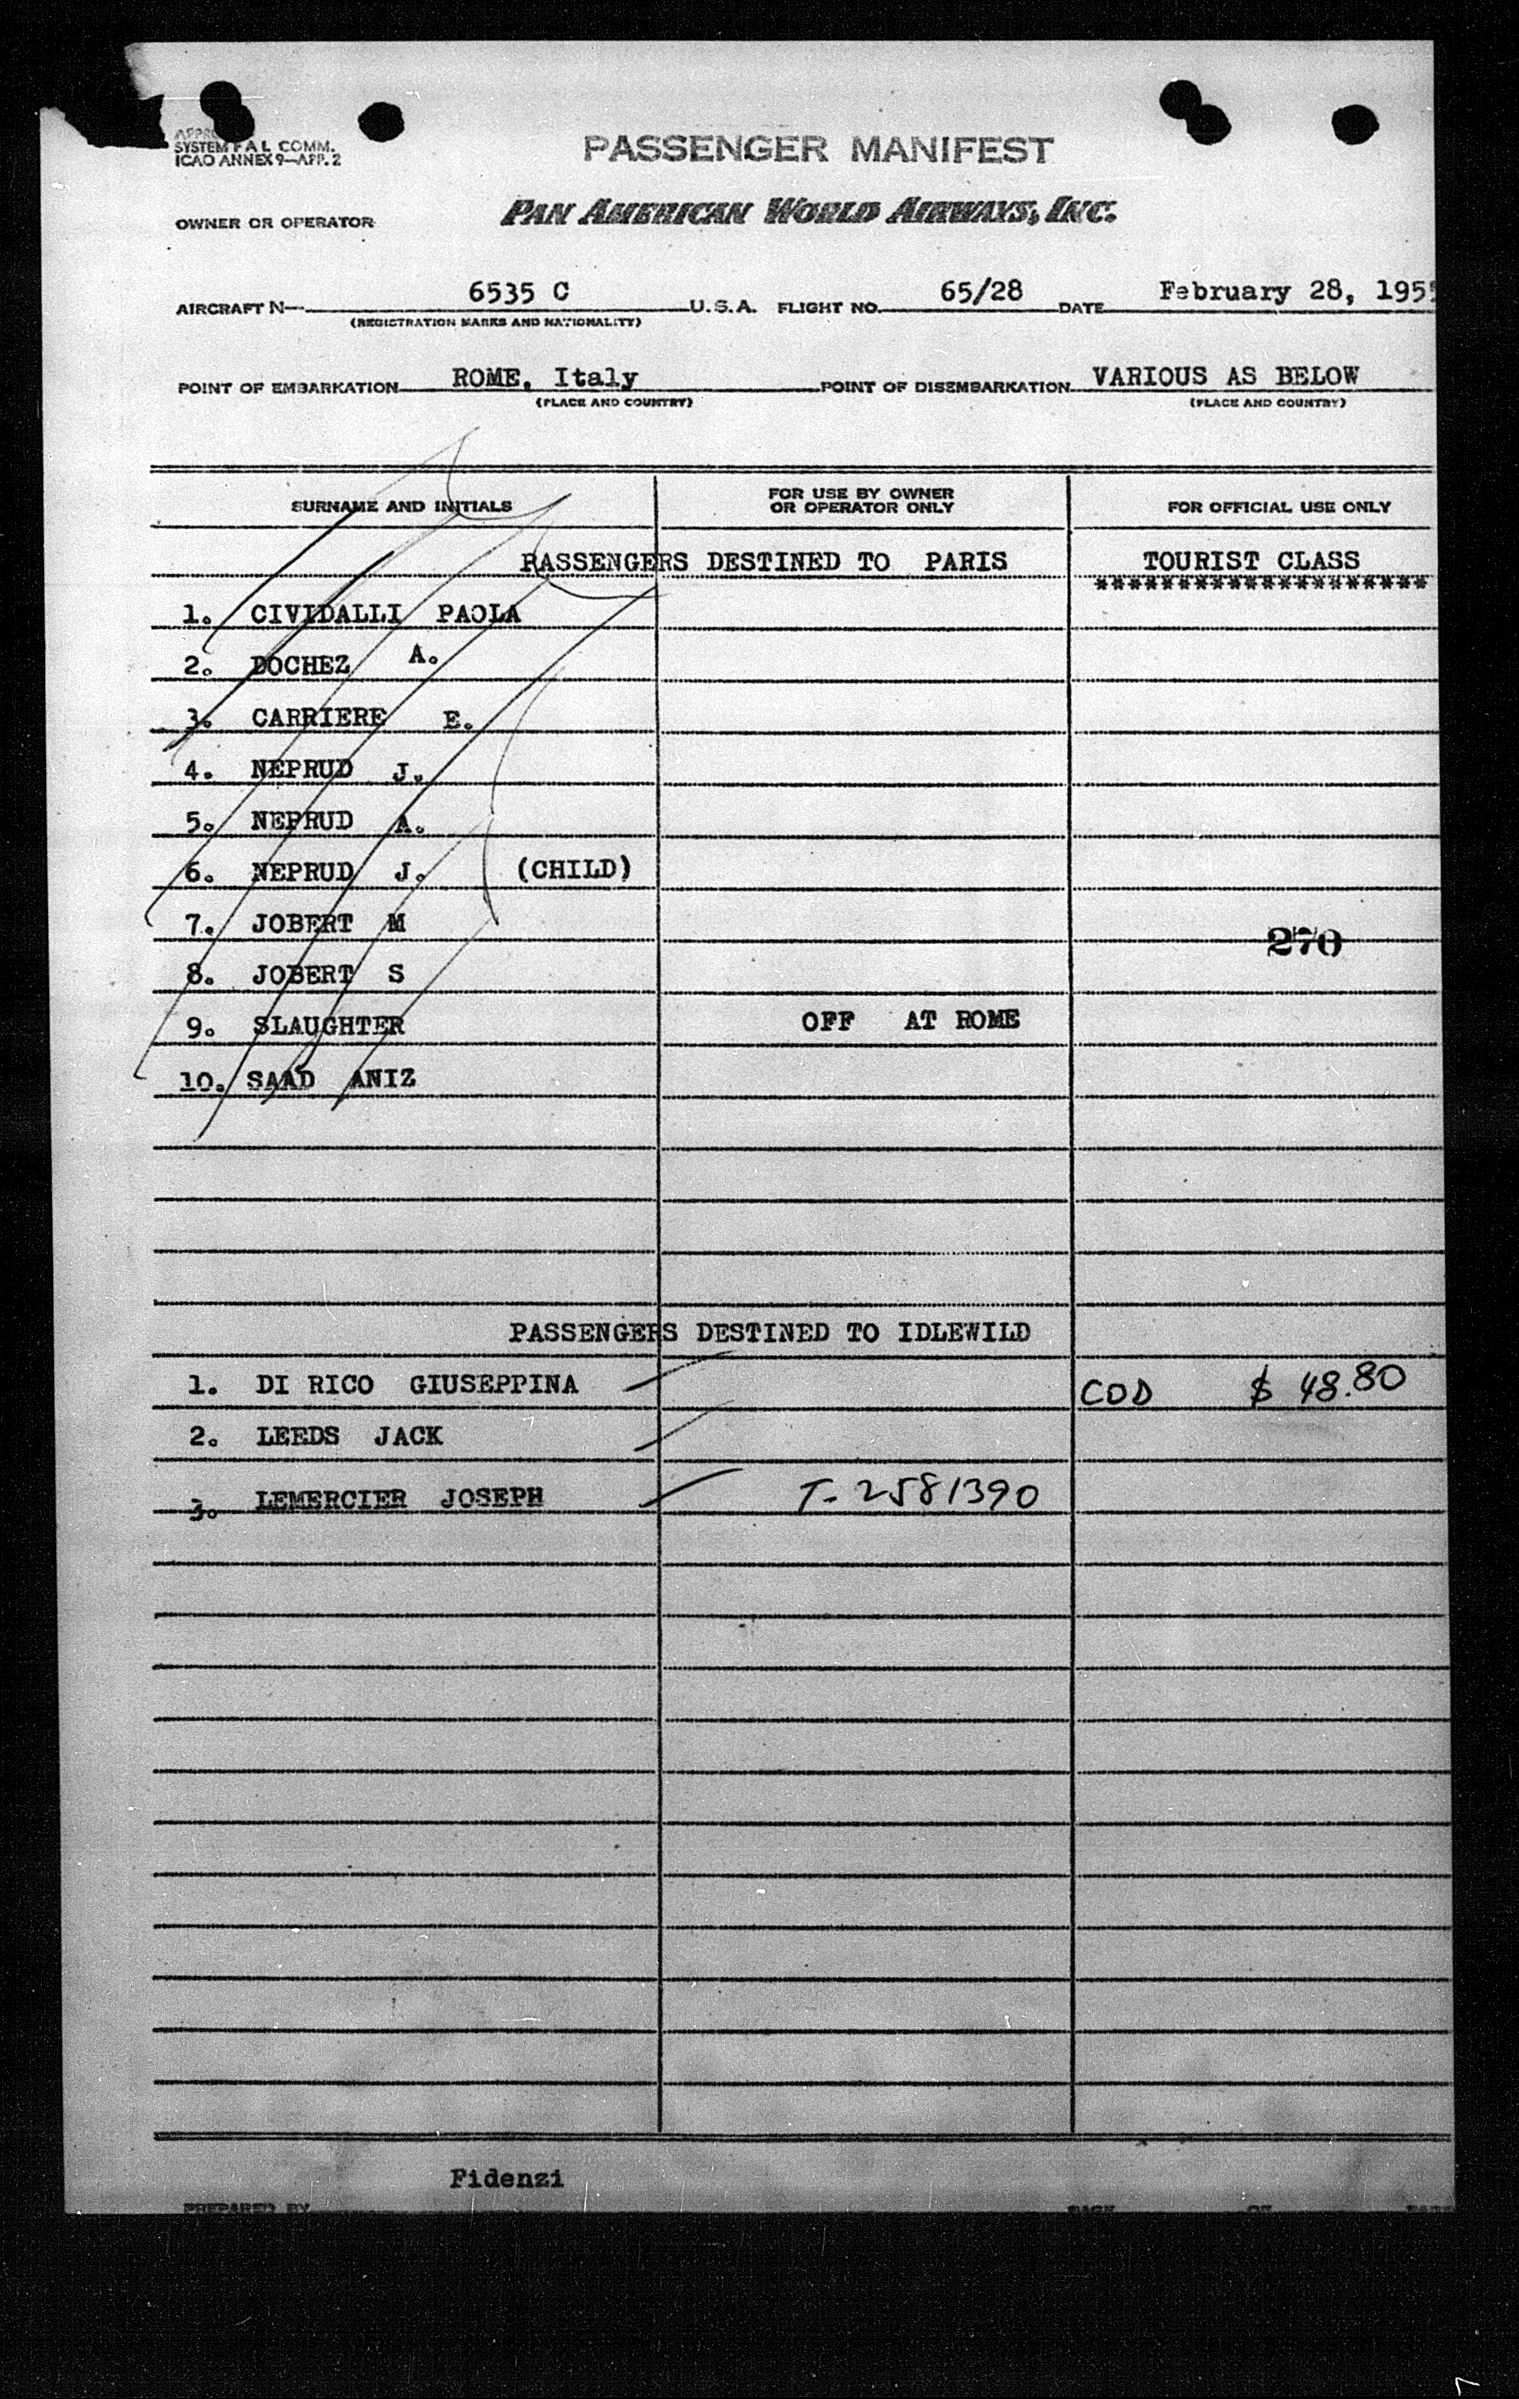 SYSTEM F A L COMM.
ICAO ANNEX 9—APP. 2
PASSENGER MANIFEST
OWNER OR OPERATOR
PAN AMERICAN WORLD AIRWAYS, INC.
AIRCRAFT N— 6535 C U.S.A. FLIGHT NO. 65/28 DATE February 28, 1955
(REGISTRATION MARKS AND NATIONALITY)
POINT OF EMBARKATION ROME, Italy POINT OF DISEMBARKATION VARIOUS AS BELOW
(PLACE AND COUNTRY) (PLACE AND COUNTRY)
SURNAME AND INITIALS FOR USE BY OWNER OR OPERATOR ONLY FOR OFFICIAL USE ONLY
PASSENGERS DESTINED TO PARIS TOURIST CLASS
********************
1. CIVIDALLI PAOLA
2. DOCHEZ A.
3. CARRIERE E.
4. NEPRUD J.
5. NEPRUD A.
6. NEPRUD J. (CHILD)
7. JOBERT M
270
8. JOBERT S
9. SLAUGHTER OFF AT ROME
10. SAAD ANIZ
PASSENGERS DESTINED TO IDLEWILD
1. DI RICO GIUSEPPINA COD $ 48.80
2. LEEDS JACK
3. LEMERCIER JOSEPH T- 2581390
Fidenzi
PREPARED BY PAGE OF